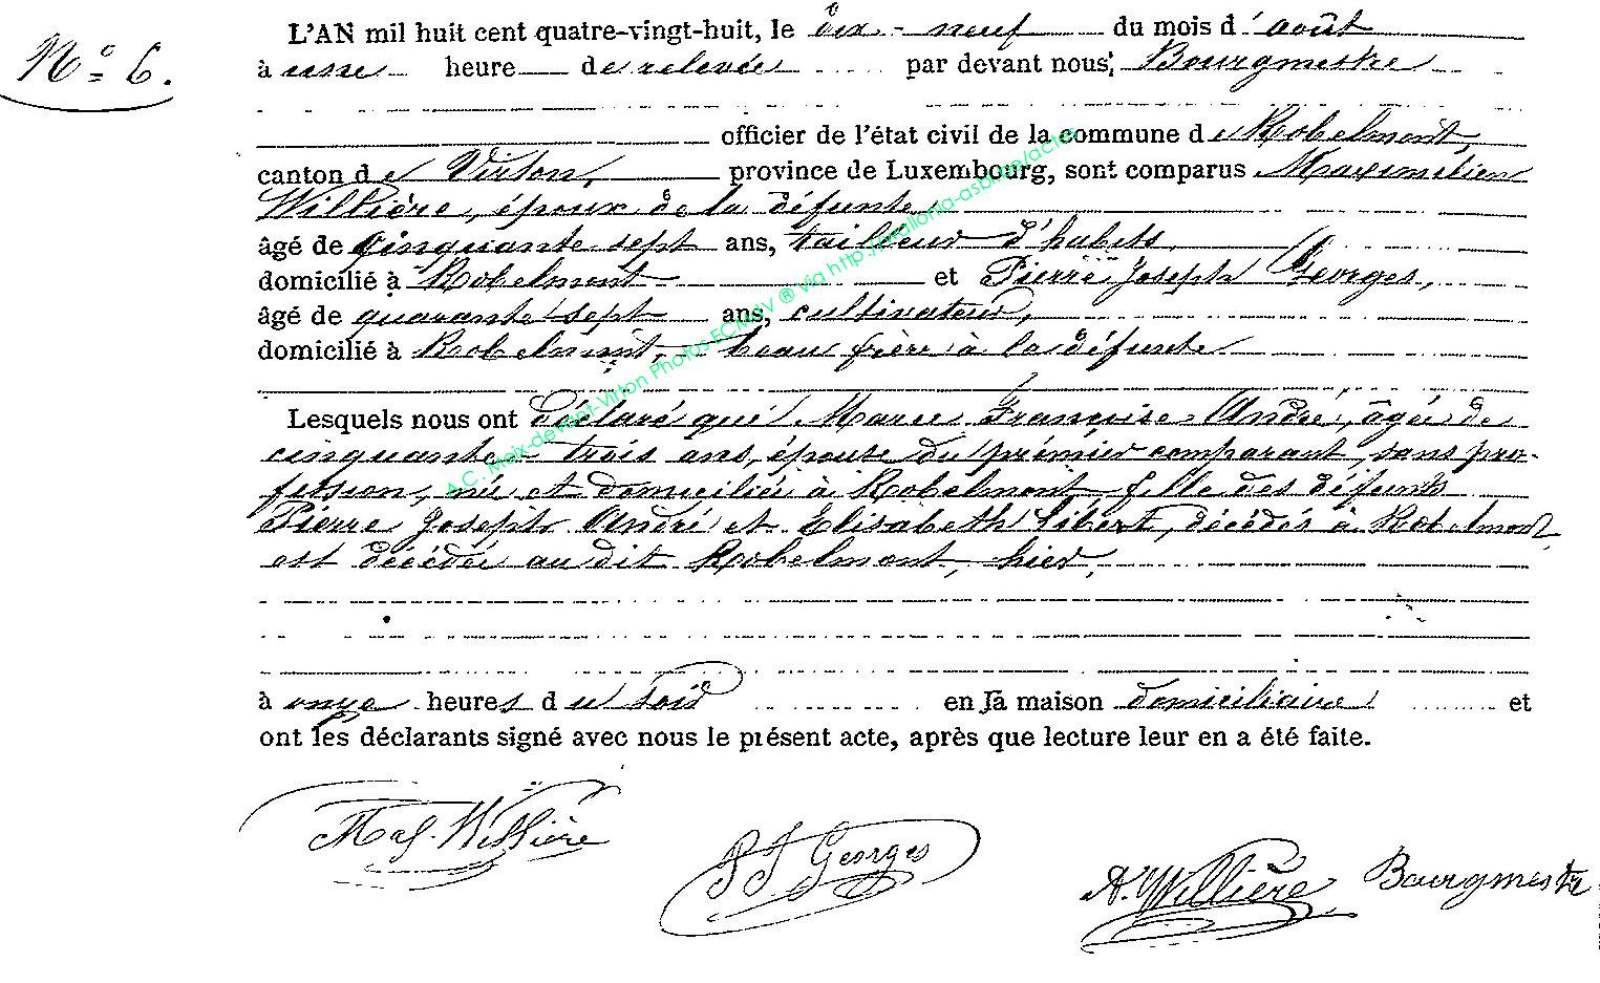 N° 6.
L'AN mil huit cent quatre-vingt-huit, le dix-neuf du mois d'août
à une heure de relevée par devant nous, Bourgmestre
officier de l'état civil de la commune de Robelmont,
canton de Virton, province de Luxembourg, sont comparus Maximilien
Willière, époux de la défunte
âgé de cinquante sept ans, tailleur d'habits,
domicilié à Robelmont et Pierre Joseph Georges,
âgé de quarante sept ans, cultivateur,
domicilié à Robelmont, beau frère à la défunte
Lesquels nous ont déclaré que Marie Françoise André, âgée de
cinquante-trois ans, épouse du prémier comparant, sans pro-
fession, née et domiciliée à Robelmont fille des défunts
Pierre Joseph André et Elisabeth Libert, décédés à Robelmont,
est décédée au dit Robelmont, hier,
à onze heures du soir en la maison domiciliaire et
ont les déclarants signé avec nous le présent acte, après que lecture leur en a été faite.
Willière
P J Georges
A. Willière Bourgmestre
A.C. Meix-devant-Virton Photos ECMdV ® via http://wallonia-asbl.be/actes